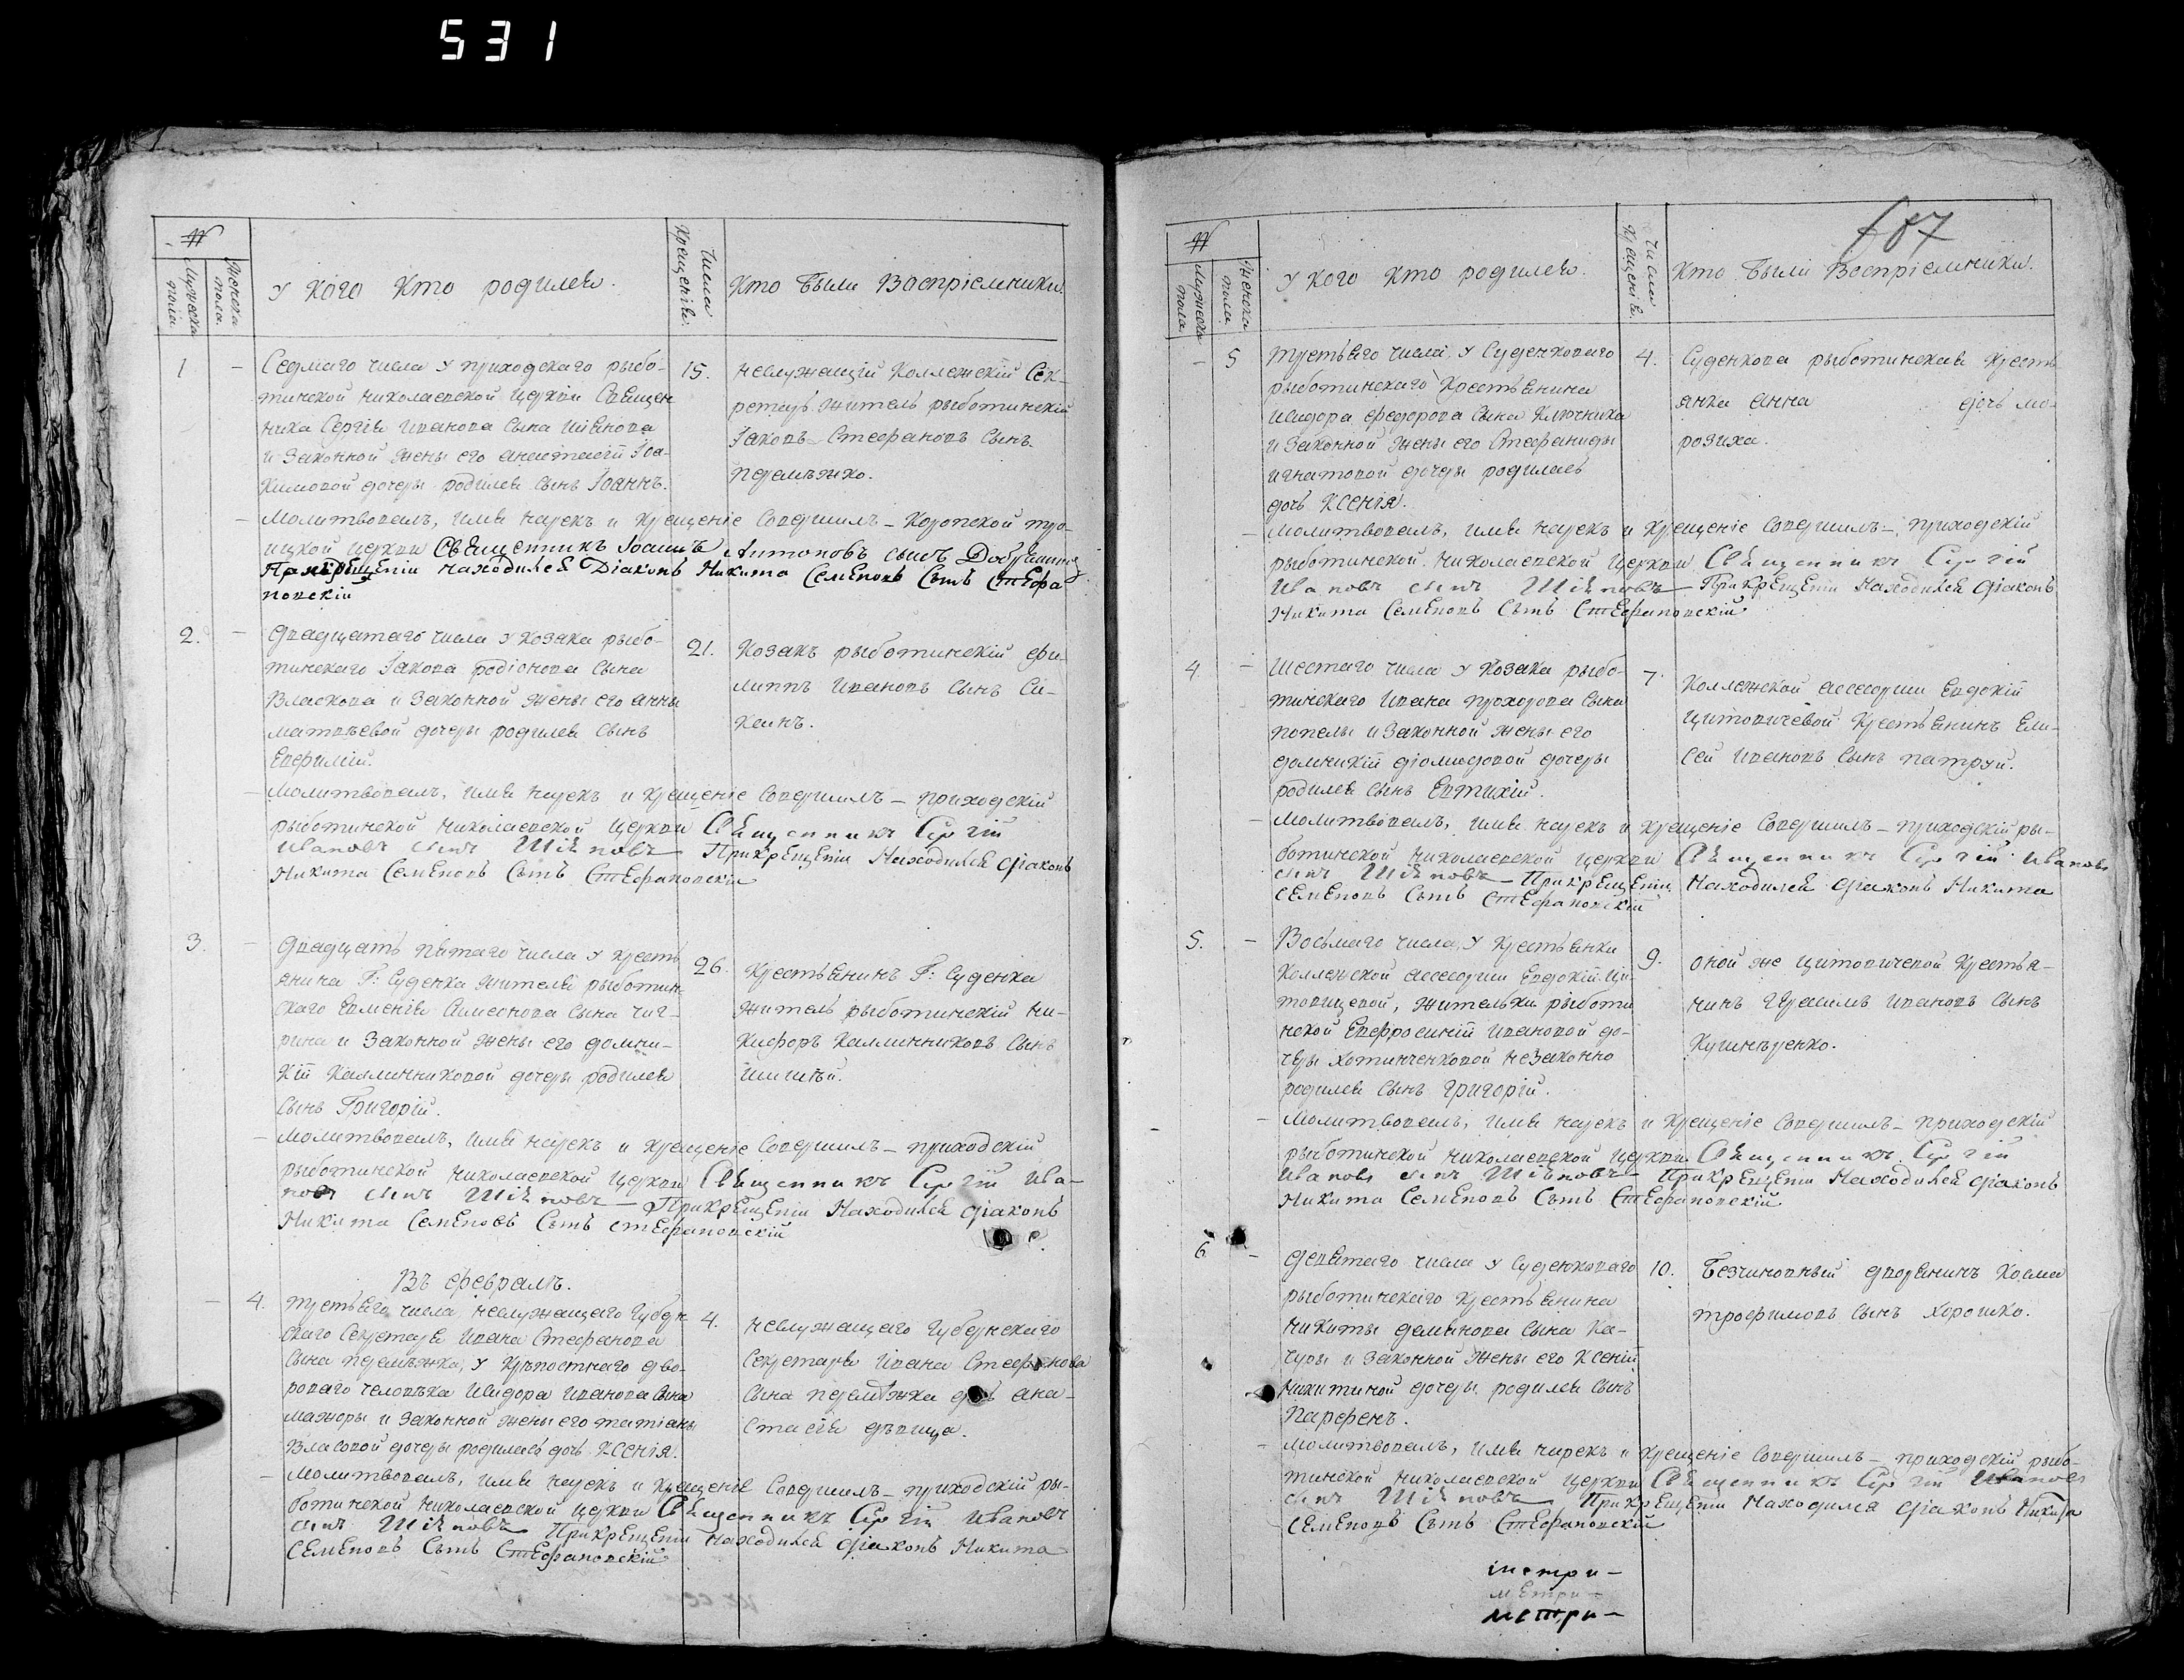 531
№
Мужеска пола
Женска пола.
У кого кто родился.
Числа крещенія.
Кто были Воспріемники.
1 – Седмаго числа у приходскаго рыбо-
тинской Николаевской церкви Священ
ника Сергія Иванова сына Шіянова
и законной жены его Анастасіи Іоа-
кимовой дочери родился сынъ Іоаннъ.
15. Неслужащій Коллежскій Сек-
ретарь житель рыботинскій
Іаковъ Стефановъ сынъ
Перемѣжко.
– Молитвовалъ, имя нарекъ и крещеніе совершилъ – Коропской тро-
ицкой церкви Священникъ Іоаннъ Антоновъ сынъ
При крещеніи находился Діаконъ Никита Семеновъ Сынъ Стефа
новскій
2. – Двадцатаго числа у козака рыбо-
тинскаго Іакова Родіонова сына
Власкова и законной жены его Анны
Матвѣевой дочери родился сынъ
Евфимій.
21. Козакъ рыботинскій Фи-
липпъ Ивановъ сынъ Си-
каинъ.
– Молитвовалъ, имя нарекъ и крещеніе совершилъ – приходскій
рыботинской Николаевской церкви Священникъ Сергій
Ивановъ сынъ Шіяновъ При крещеніи Находился діаконъ
Никита Семеновъ Сынъ Стефановскій
3. – Двадцать пятаго числа у кресть
янина Г: Суденка жителя рыботин-
скаго Ерменія Симеонова сына Чиг-
рина и законной жены его Домни-
кіи Каллинниковой дочери родился
сынъ Григорій.
26. Крестьянинъ Г: Суденка
житель рыботинскій Ни-
кифоръ Каллинниковъ сынъ
– Молитвовалъ, имя нарекъ и крещеніе совершилъ – приходскій
рыботинской Николаевской церкви Священникъ Сергій Ива-
новъ сынъ Шіяновъ При крещеніи Находился діаконъ
Никита Семеновъ Сынъ Стефановскій
Въ Февралѣ.
– 4. Третьяго числа неслужащаго Губерн
скаго Секретаря Ивана Стефанова
сына Перемѣжка, у крѣпостнаго дво-
роваго человѣка Исидора Иванова сына
Мажоры и законной жены его Татіаны
Власовой дочери родилась дочь Ксенія.
4. Неслужащаго Губернскаго
Секретаря Ивана Стефанова
сына Перемѣжка дочь Ана-
стасія дѣвица.
– Молитвовалъ, имя нарекъ и крещеніе совершилъ – приходскій ры-
ботинской Николаевской церкви Священникъ Сергій Ивановъ
сынъ Шіяновъ При крещеніи находился діаконъ Никита
Семеновъ Сынъ Стефановскій
№
Мужеска пола.
Женска пола
У кого кто родился.
Числа крещенія.
Кто были Воспріемники.
– 5 Третьяго числа, у Суденковаго
рыботинскаго крестьянина
Исидора Федорова сына Ключника
и законной жены его Стефаниды
Игнатовой дочери родилась
дочь Ксенія.
4. Суденкова рыботинская кресть
янка Анна дочь Мо-
розиха.
– Молитвовалъ, имя нарекъ и крещеніе совершилъ – приходскій
рыботинской Николаевской церкви Священникъ Сергій
Ивановъ сынъ Шіяновъ При крещеніи Находился діаконъ
Никита Семеновъ Сынъ Стефановскій
4 – Шестаго числа у козака рыбо-
тинскаго Ивана Прохорова сына
Попелы и законной жены его
Домникіи Діомидовой дочери
родился сынъ Евтихій.
7. Коллежской ассесорши Евдокіи
Цитовичевой крестьянинъ Ели-
сей Ивановъ сынъ Патруй.
– Молитвовалъ, имя нарекъ и крещеніе совершилъ – приходскій ры-
ботинской Николаевской церкви Священникъ Сергій Ивановъ
сынъ Шіяновъ – При крещеніи Находился діаконъ Никита
Семеновъ Сынъ Стефановскій
5. – Восьмаго числа, у крестьянки
Коллежской ассесорши Евдокіи Ци-
товичевой, жительки рыботи
нской Евфросиніи Ивановой до-
чери Хотинченковой незаконно
родился сынъ Григорій.
9. Оной же Цитовичевой крестья-
нинъ Герасимъ Ивановъ сынъ
– Молитвовалъ, имя нарекъ и крещеніе совершилъ – приходскій
рыботинской Николаевской церкви Священникъ Сергій
Ивановъ сынъ Шіяновъ – При крещеніи Находился діаконъ
Никита Семеновъ Сынъ Стефановскій
6 – Девятаго числа у Суденковаго
рыботинскаго крестьянина
Никиты Даміянова сына Ка-
чуры и законной жены его Ксеніи
Никитиной дочери, родился сынъ
Парфенъ.
10. Безчиновный дворянинъ Косма
Трофимовъ сынъ Хорошко.
– Молитвовалъ, имя нарекъ и крещеніе совершилъ – приходскій рыбо-
тинской Николаевской церкви Священникъ Сергій Ивановъ
сынъ Шіяновъ При крещеніи находился діаконъ Никита
Семеновъ Сынъ Стефановскій
метри –
метри –